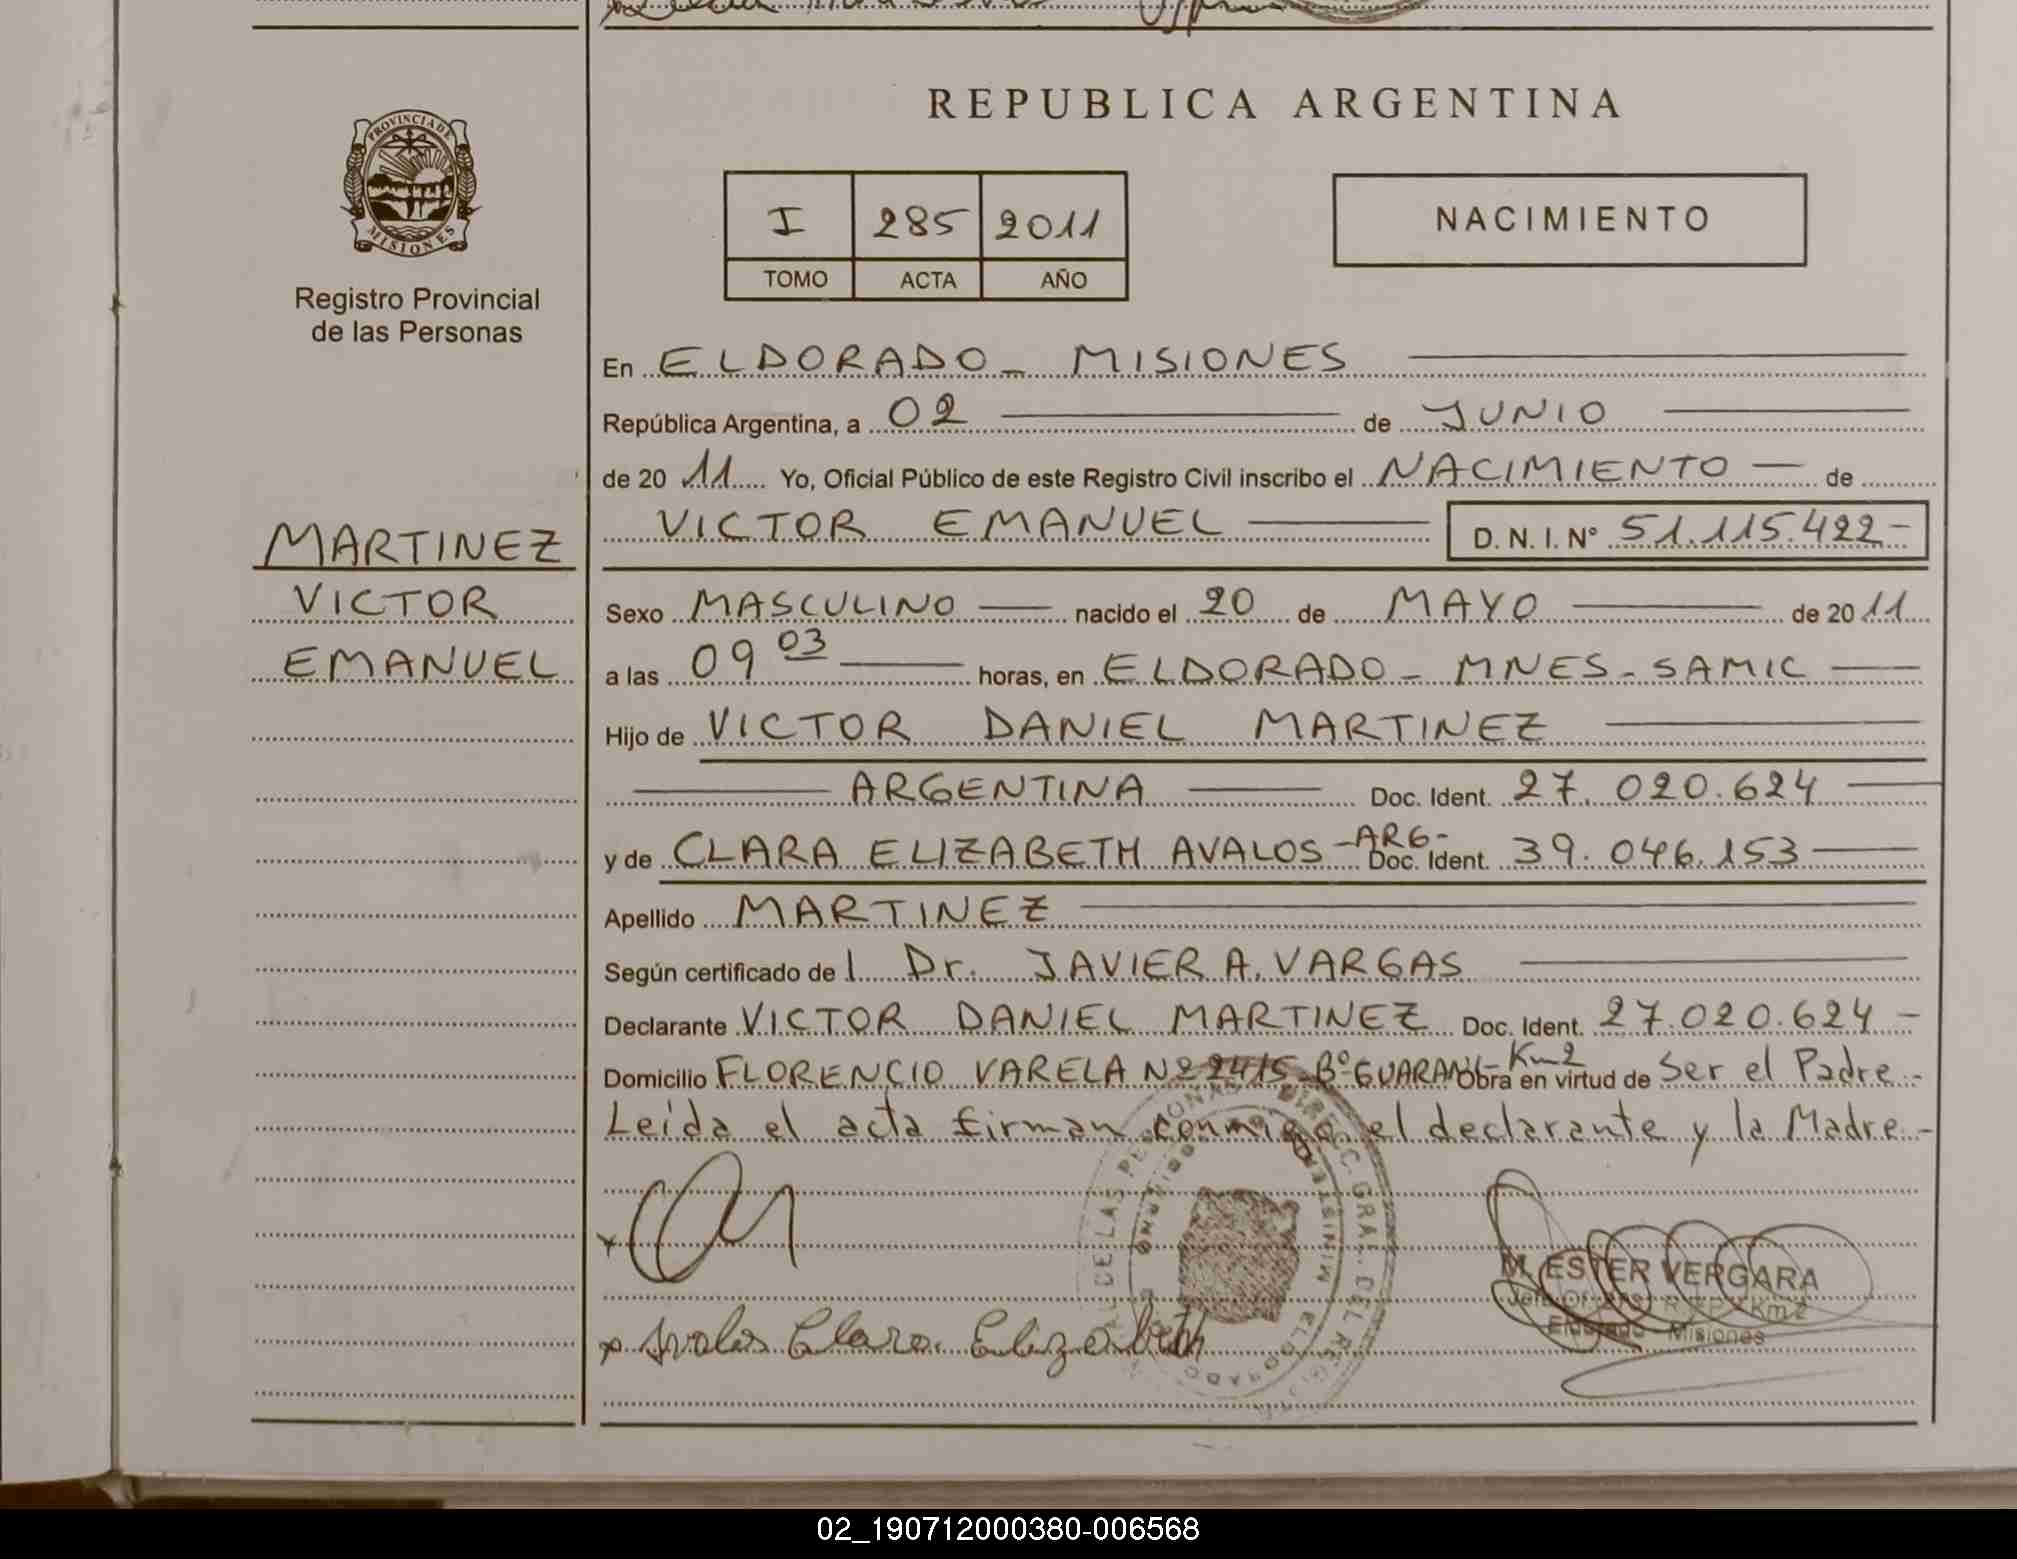 REPUBLICA ARGENTINA
PROVINCIA DE
MISIONES
Registro Provincial
de las Personas
I 285 2011
TOMO ACTA AÑO
NACIMIENTO
En ELDORADO - MISIONES
República Argentina, a 02 de JUNIO
de 20 11 Yo, Oficial Público de este Registro Civil inscribo el NACIMIENTO de
VICTOR EMANUEL D. N. I. Nº 51.115.422-
MARTINEZ
VICTOR
EMANUEL
Sexo MASCULINO nacido el 20 de MAYO de 20 11
a las 09 03 horas, en ELDORADO - MNES - SAMIC
Hijo de VICTOR DANIEL MARTINEZ
ARGENTINA Doc. Ident. 27.020.624
y de CLARA ELIZABETH AVALOS - ARG- Doc. Ident. 39.046.153
Apellido MARTINEZ
Según certificado de l Dr. JAVIER A. VARGAS
Declarante VICTOR DANIEL MARTINEZ Doc. Ident. 27.020.624 -
Domicilio FLORENCIO VARELA Nº 2415 - Bº GUARANI - Km 2 Obra en virtud de Ser el Padre -
Leída el acta firman conmigo el declarante y la Madre -
x Avalos Clara Elizabeth
M. ESTER VERGARA
Km 2
Eldorado - Misiones
02_190712000380-006568